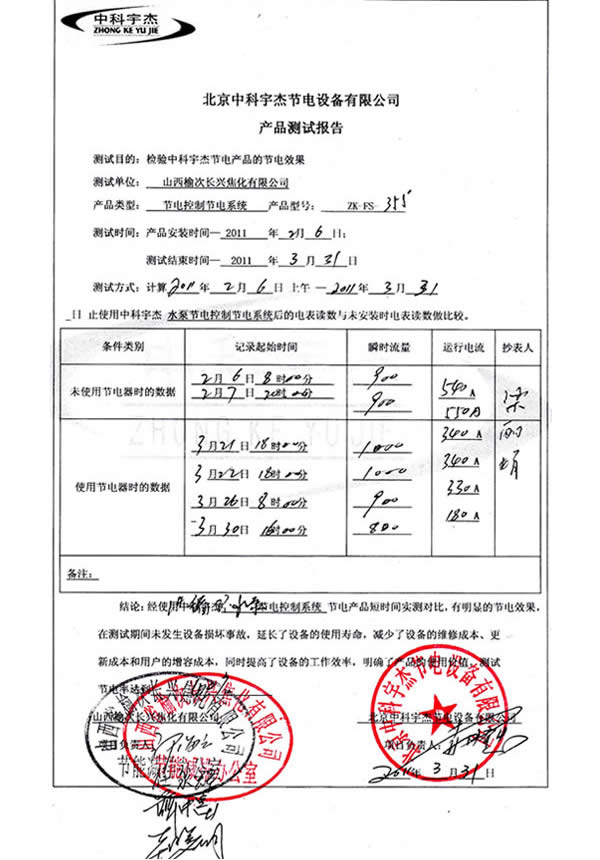 中科宇杰
ZHONG KE YU JIE
北京中科宇杰节电设备有限公司
产品测试报告
测试目的：检验中科宇杰节电产品的节电效果
测试单位：山西榆次长兴焦化有限公司
产品类型：节电控制节电系统 产品型号：ZK-FS-355
测试时间：产品安装时间—2011 年 2月 6 日；
测试结束时间—2011 年 3 月 31 日
测试方式：计算 2011 年 2 月 6 日 上午 — 2011 年 3 月 31
日 止使用中科宇杰 水泵节电控制节电系统后的电表读数与未安装时电表读数做比较。
条件类别 记录起始时间 瞬时流量 运行电流 抄表人
未使用节电器时的数据 2月 6日 8时00分 900 540 A
2月 7日 20时00分 900 550 A
使用节电器时的数据 3月21日 18时00分 1000 340 A
3月22日 18时00分 1000 340 A
3月26日 8时00分 900 330 A
3月30日 16时00分 800 180 A
ZHONG KE YU JIE
备注：
结论：经使用中科宇杰 节电控制系统 节电产品短时间实测对比，有明显的节电效果，
在测试期间未发生设备损坏事故，延长了设备的使用寿命，减少了设备的维修成本、更
新成本和用户的增容成本，同时提高了设备的工作效率，明确了产品的使用价值，测试
节电率达到
山西榆次长兴焦化有限公司 北京中科宇杰节电设备有限公司
项目负责人： 项目负责人：
2011年 3 月 31 日
节能减排办公室